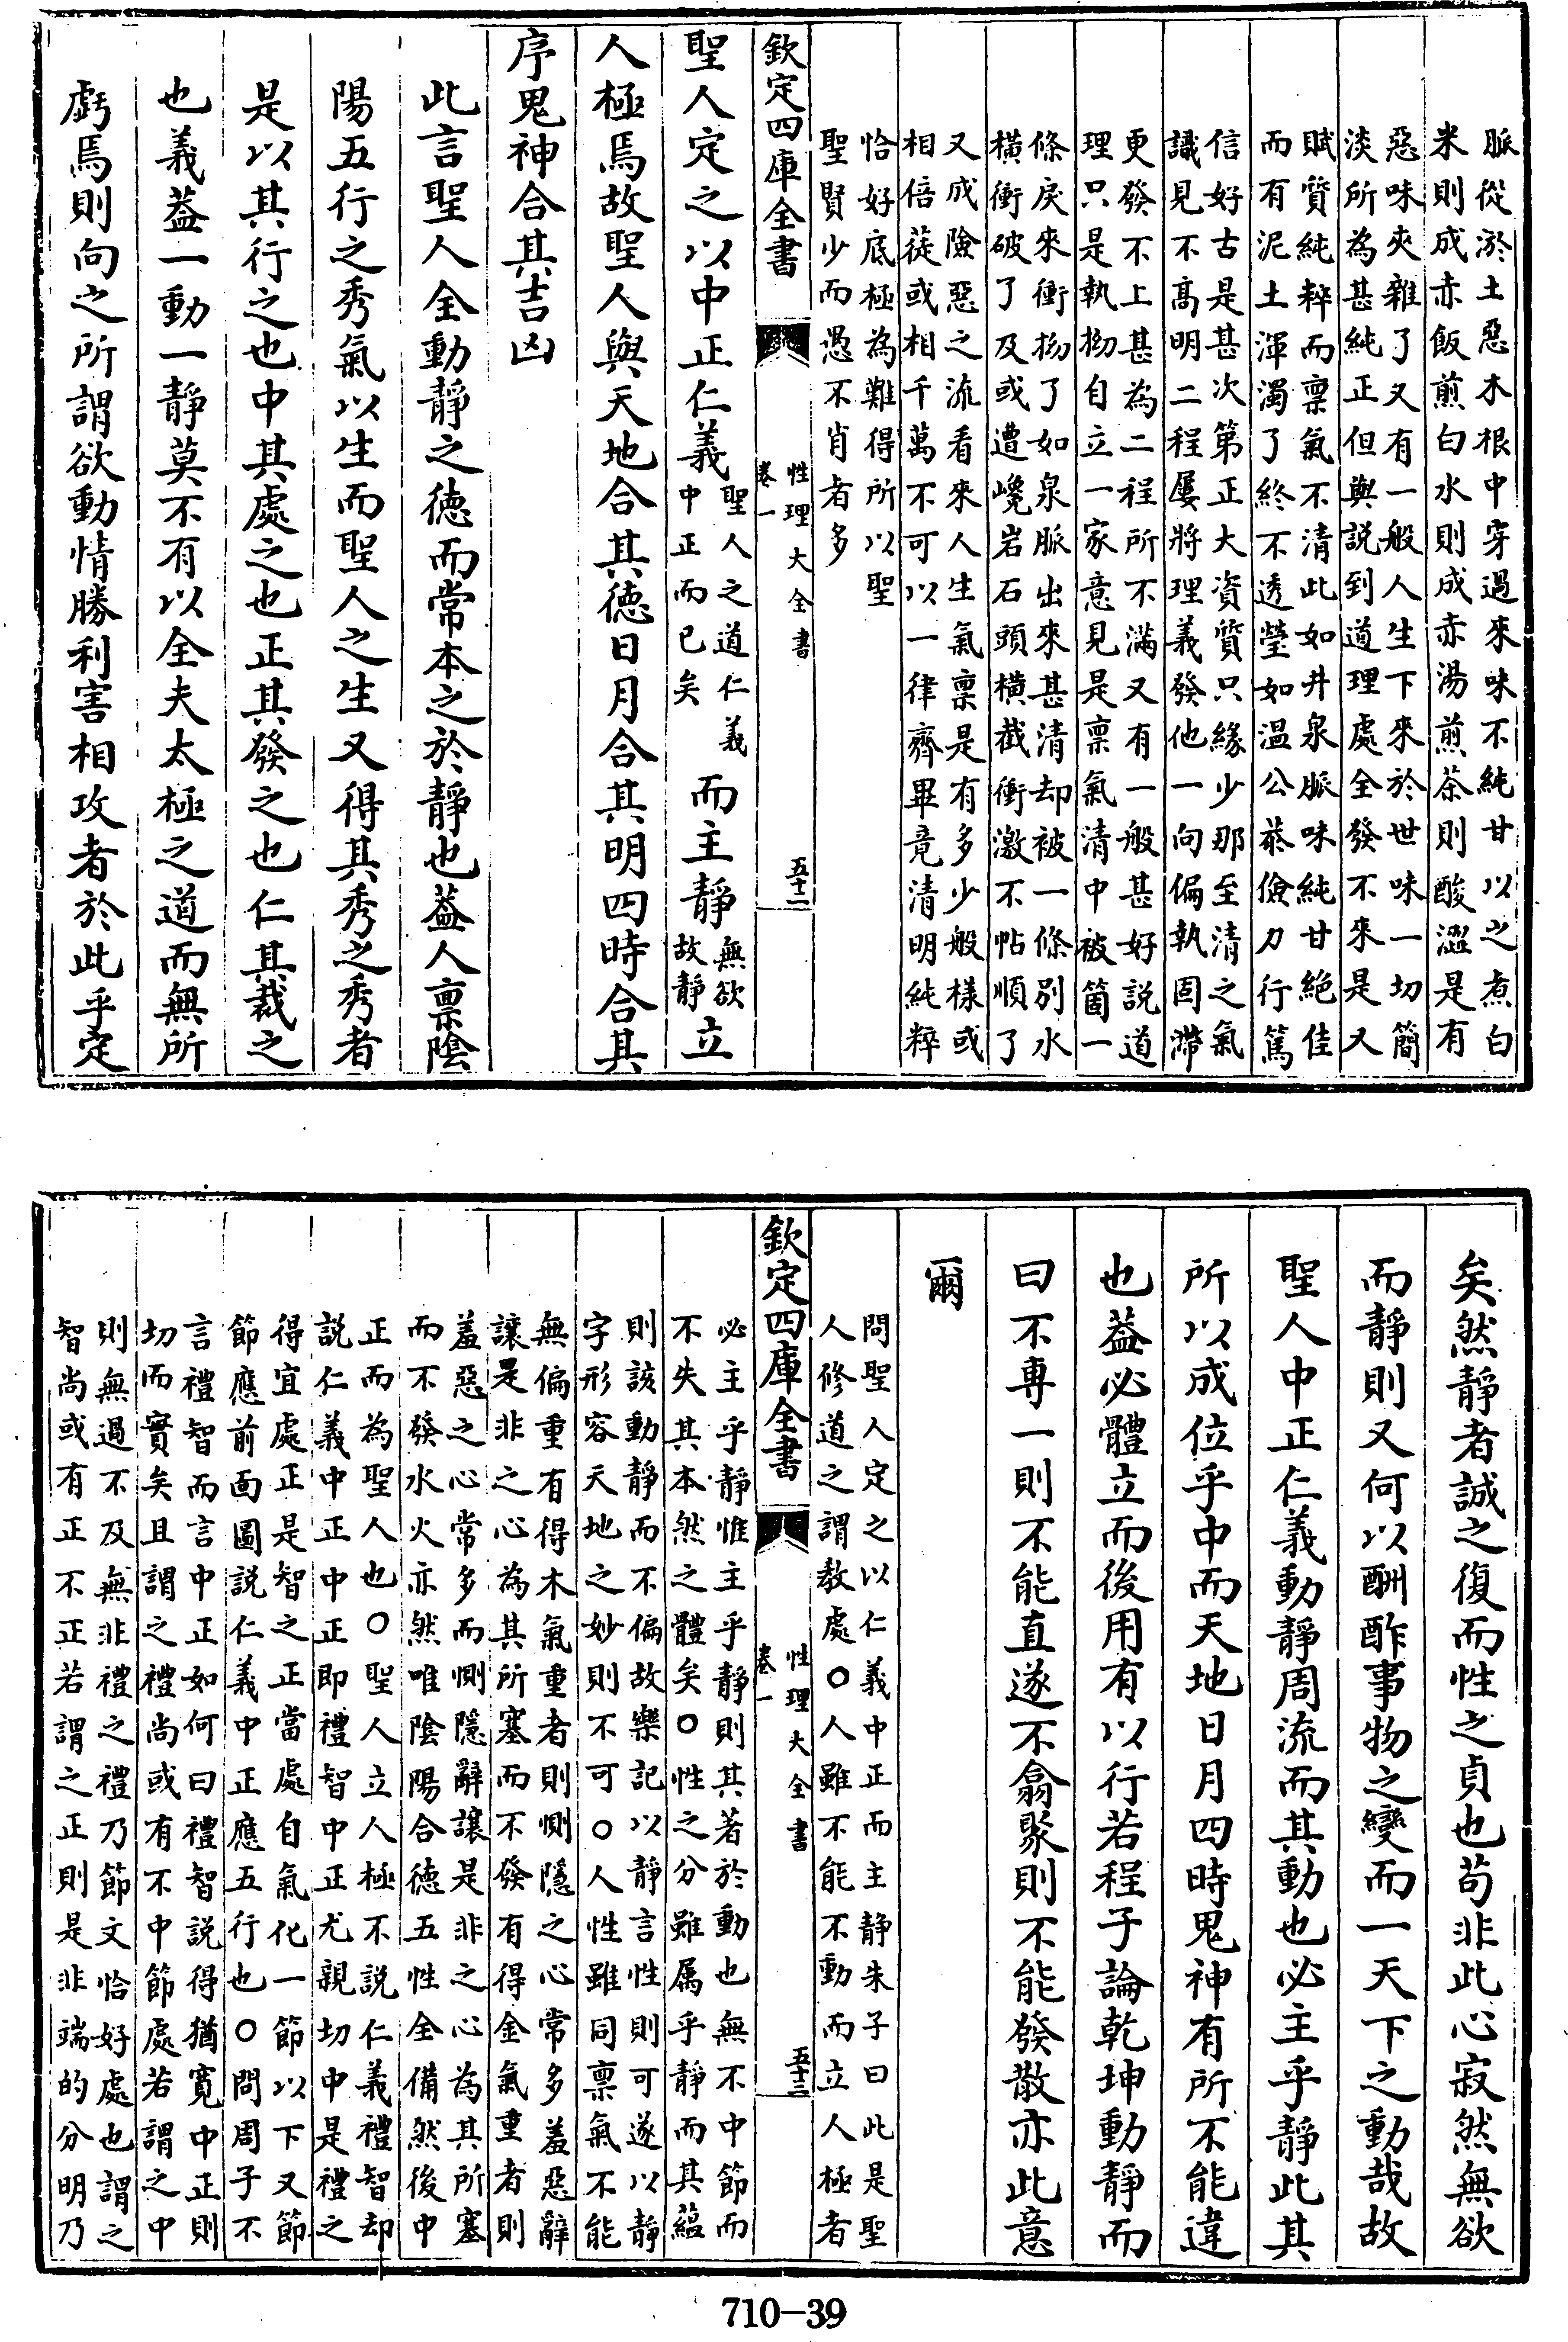 脈從淤土惡木根中穿過來味不純甘以之煮白
米則成赤飯煎白水則成赤湯煎茶則酸澀是有
惡味夾雜了又有一般人生下來於世味一切簡
淡所為甚純正但與説到道理處全發不來是又
賦質純粹而禀氣不清此如井泉脈味純甘絶佳
而有泥土渾濁了終不透瑩如温公恭儉力行篤
信好古是甚次第正大資質只緣少那至清之氣
識見不髙明二程屢將理義發他一向偏執固滯
更發不上甚為二程所不滿又有一般甚好説道
理只是執拗自立一家意見是禀氣清中被箇一
條戾來衝拗了如泉脈出來甚清却被一條别水
横衝破了及或遭巉岩石頭横截衝激不帖順了
又成險惡之流看來人生氣禀是有多少般樣或
相倍蓰或相千萬不可以一律齊畢竟清明純粹
恰好底極為難得所以聖
聖賢少而愚不肖者多
欽定四庫全書
性理大全書
卷一
五十二
聖人定之以中正仁義聖人之道仁義中正而已矣而主靜無欲故靜立
人極焉故聖人與天地合其徳日月合其明四時合其
序鬼神合其吉凶
此言聖人全動靜之徳而常本之於靜也葢人禀陰
陽五行之秀氣以生而聖人之生又得其秀之秀者
是以其行之也中其處之也正其發之也仁其裁之
也義葢一動一靜莫不有以全夫太極之道而無所
虧焉則向之所謂欲動情勝利害相攻者於此乎定
矣然靜者誠之復而性之貞也苟非此心寂然無欲
而靜則又何以酬酢事物之變而一天下之動哉故
聖人中正仁義動靜周流而其動也必主乎靜此其
所以成位乎中而天地日月四時鬼神有所不能違
也葢必體立而後用有以行若程子論乾坤動靜而
曰不專一則不能直遂不翕聚則不能發散亦此意
爾
問聖人定之以仁義中正而主靜朱子曰此是聖
人修道之謂教處○人雖不能不動而立人極者
欽定四庫全書
性理大全書
卷一
五十三
必主乎靜惟主乎靜則其著於動也無不中節而
不失其本然之體矣○性之分雖屬乎靜而其蘊
則該動靜而不偏故樂記以靜言性則可遂以靜
字形容天地之妙則不可○人性雖同禀氣不能
無偏重有得木氣重者則惻隱之心常多羞惡辭
讓是非之心為其所塞而不發有得金氣重者則
羞惡之心常多而惻隱辭讓是非之心為其所塞
而不發水火亦然唯陰陽合德五性全備然後中
正而為聖人也○聖人立人極不説仁義禮智却
説仁義中正中正即禮智中正尤親切中是禮之
得宜處正是智之正當處自氣化一節以下又節
節應前面圖説仁義中正應五行也○問周子不
言禮智而言中正如何曰禮智説得猶寛中正則
切而實矣且謂之禮尚或有不中節處若謂之中
則無過不及無非禮之禮乃節文恰好處也謂之
智尚或有正不正若謂之正則是非端的分明乃
710-39